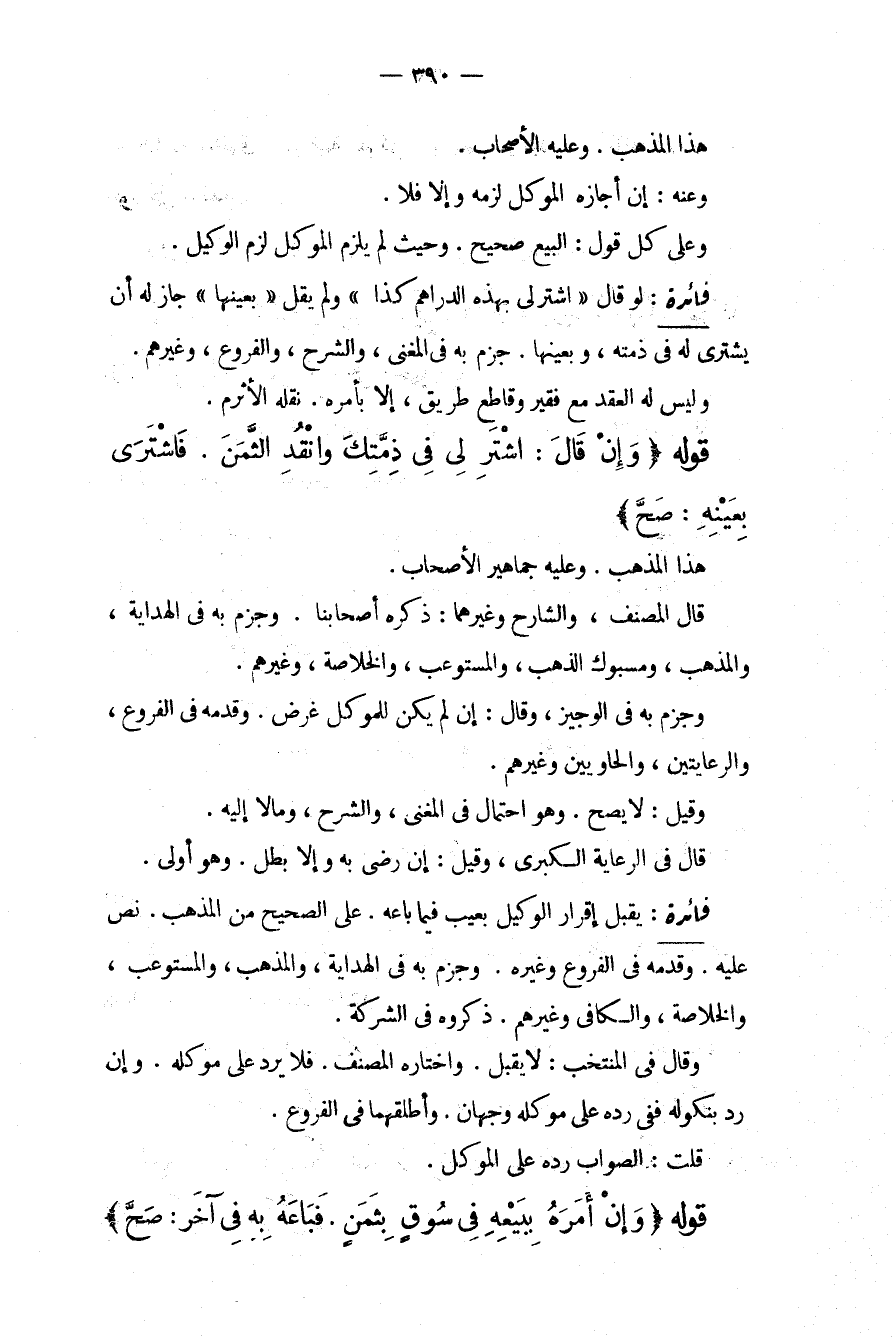 — ٣٩٠ —
هذا المذهب . وعليه الأصحاب .
وعنه : إن أجازه الموكل لزمه و إلا فلا .
وعلى كل قول : البيع صحيح . وحيث لم يلزم الموكل لزم الوكيل .
فائدة : لو قال « اشتر لى بهذه الدراهم كذا » ولم يقل « بعينها » جاز له أن
يشترى له فى ذمته ، و بعينها . جزم به فى المغنى ، والشرح ، والفروع ، وغيرهم .
وليس له العقد مع فقير وقاطع طريق ، إلا بأمره . نقله الأثرم .
قوله ﴿ وَإِنْ قَالَ : اشْتَرِ لِى فِى ذِمَّتِكَ وانْقُدِ الثَّمَنَ . فَاشْتَرَى
بِعَيْنِهِ : صَحَّ ﴾
هذا المذهب . وعليه جماهير الأصحاب .
قال المصنف ، والشارح وغيرهما : ذكره أصحابنا . وجزم به فى الهداية ،
والمذهب ، ومسبوك الذهب ، والمستوعب ، والخلاصة ، وغيرهم .
وجزم به فى الوجيز ، وقال : إن لم يكن للموكل غرض . وقدمه فى الفروع ،
والرعايتين ، والحاويين وغيرهم .
وقيل : لايصح . وهو احتمال فى المغنى ، والشرح ، ومالا إليه .
قال فى الرعاية الكبرى ، وقيل : إن رضى به و إلا بطل . وهو أولى .
فائدة : يقبل إقرار الوكيل بعيب فيما باعه . على الصحيح من المذهب . نص
عليه . وقدمه فى الفروع وغيره . وجزم به فى الهداية ، والمذهب ، والمستوعب ،
والخلاصة ، والكافى وغيرهم . ذكروه فى الشركة .
وقال فى المنتخب : لايقبل . واختاره المصنف . فلا يرد على موكله . و إن
رد بنكوله ففى رده على موكله وجهان . وأطلقهما فى الفروع .
قلت : الصواب رده على الموكل .
قوله ﴿ وَإِنْ أَمَرَهُ بِبَيْعِهِ فِى سُوقٍ بِثَمَنٍ . فَبَاعَهُ بِهِ فِى آخَر : صَحَّ ﴾